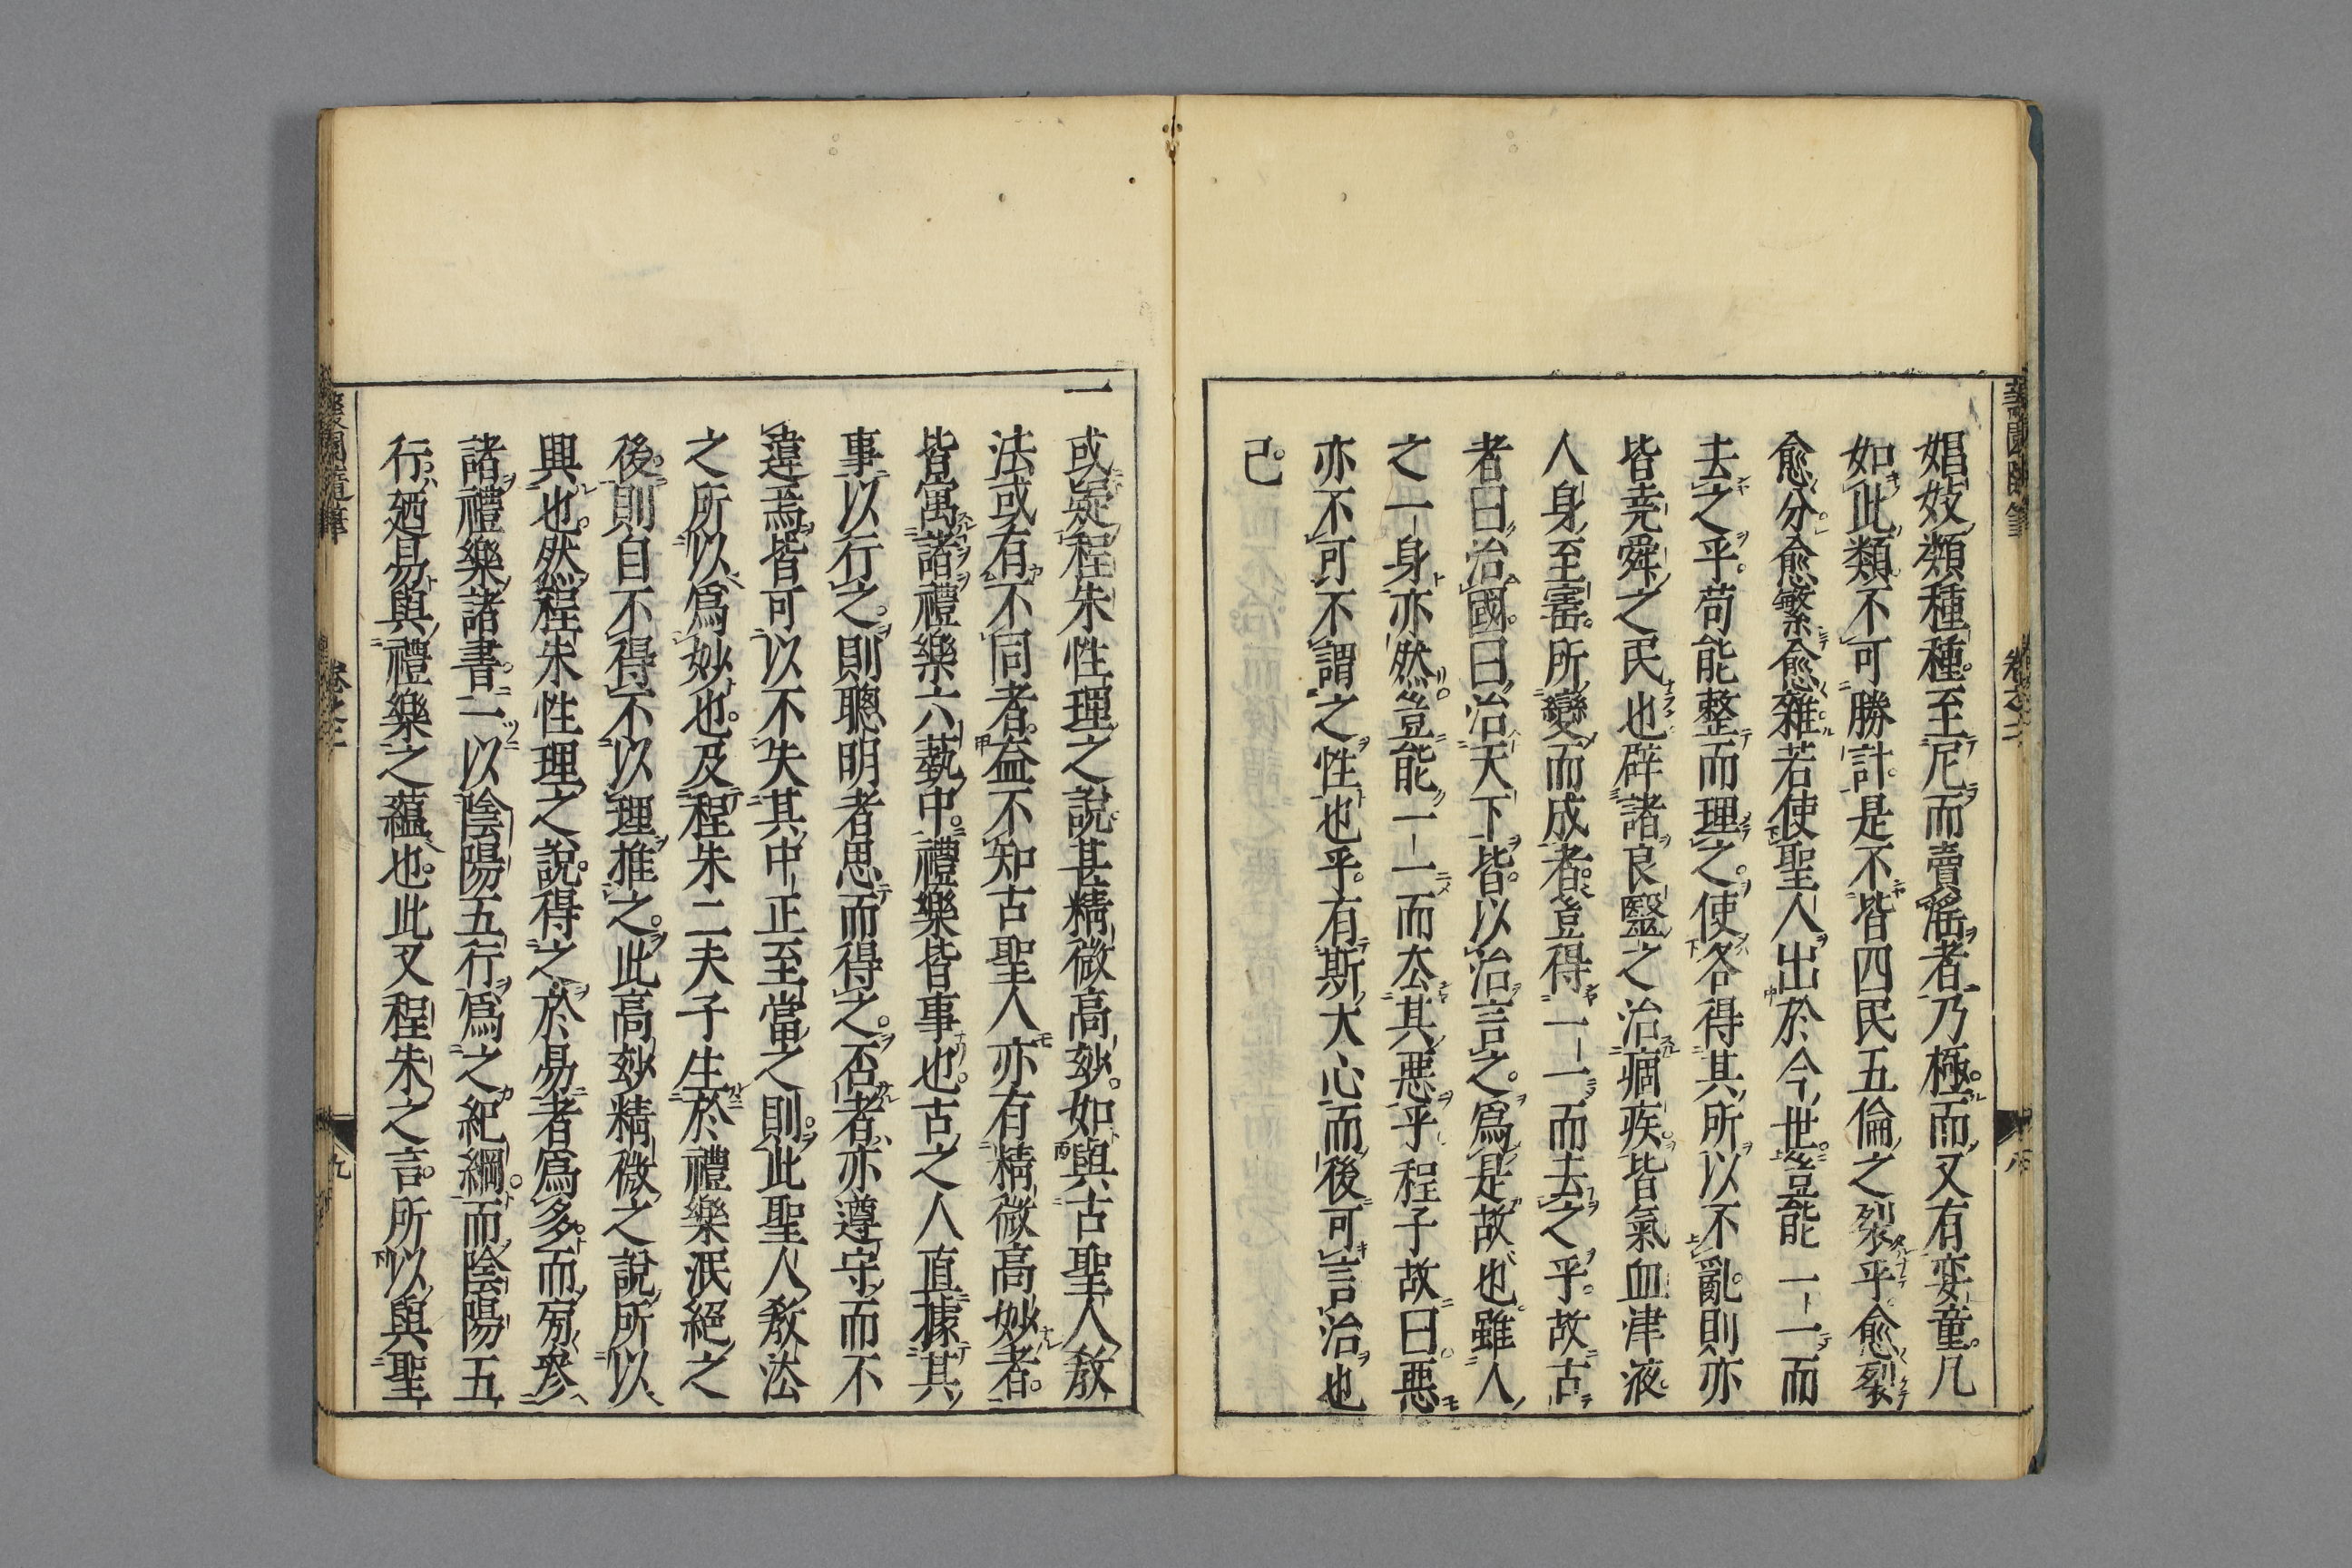 娼妓類種種至尼而賣媱者乃極而又有孌童凡
如此類不可勝計是不皆四民五倫之裂乎愈裂
愈分愈繁愈雜若使聖人出於今世豈能一一而
去之乎苟能整而理之使各得其所以不亂則亦
皆堯舜之民也辟諸良醫之治痼疾皆氣血津液
人身至寳所變而成者豈得一一而去之乎故古
者曰治國曰治天下皆以治言之爲是故也雖人
之一身亦然豈能一一而去其惡乎程子故曰惡
亦不可不謂之性也乎有斯大心而後可言治也
已
一 或疑程朱性理之說甚精微高妙如與古聖人教
法或有不同者益不知古聖人亦有精微高妙者
皆寓諸禮樂六藝中禮樂皆事也古之人直據其
事以行之則聰明者思而得之否者亦遵守而不
違焉皆可以不失其中正至當之則此聖人教法
之所以爲妙也及程朱二夫子生於禮樂泯絕之
後則自不得不以理推之此高妙精微之說所以
興也然程朱性理之說得之於易者爲多而旁參
諸禮樂諸書一以陰陽五行爲之紀綱而陰陽五
行廼易與禮樂之蘊也此又程朱之言所以與聖
蘐園隨筆 卷之二 九